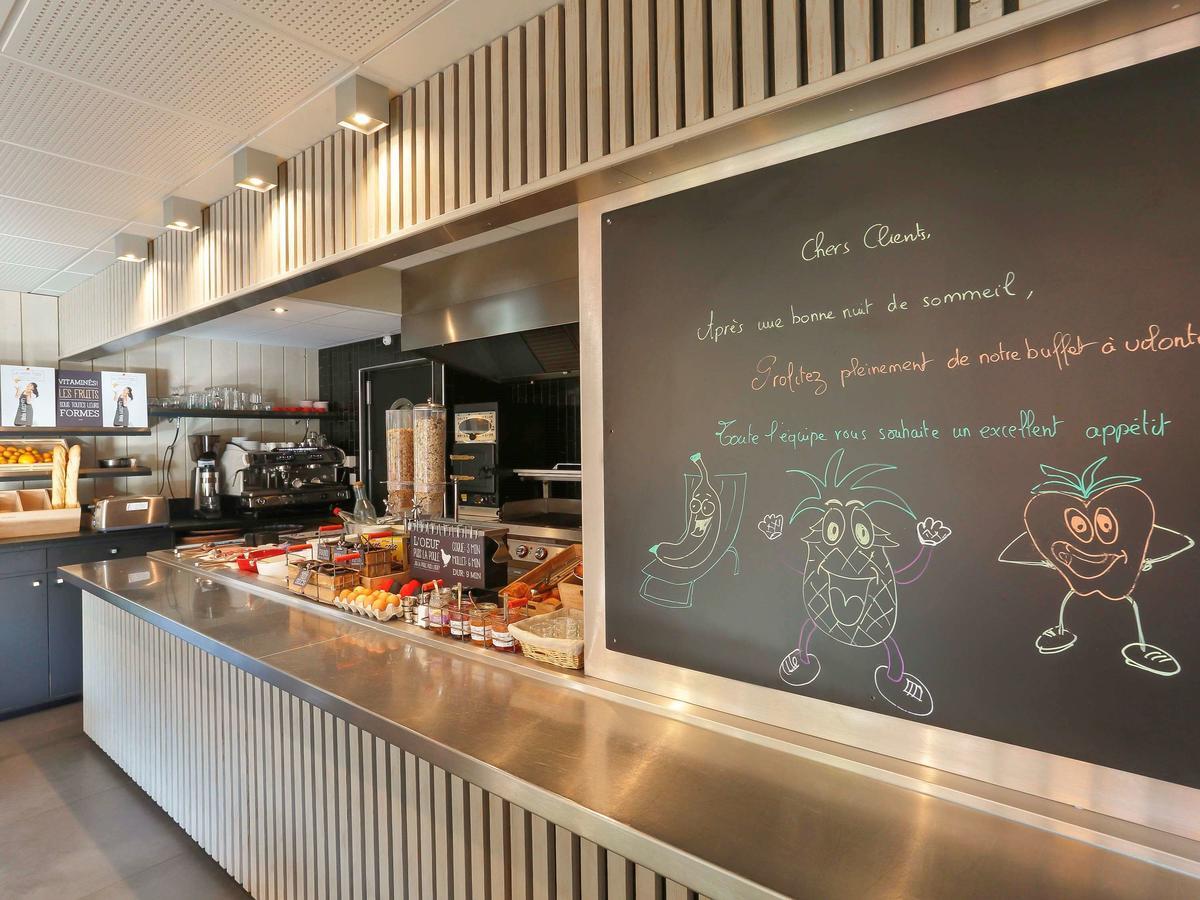 Chers Clients,
Après une bonne nuit de sommeil,
Profitez pleinement de notre buffet à volont
Toute l'équipe vous souhaite un excellent appétit
VITAMINÉS!
LES FRUITS
SOUS TOUTES LEURS
FORMES
L'OEUF
COQUE: 3 MIN
MOLLET: 6 MIN
DUR: 9 MIN